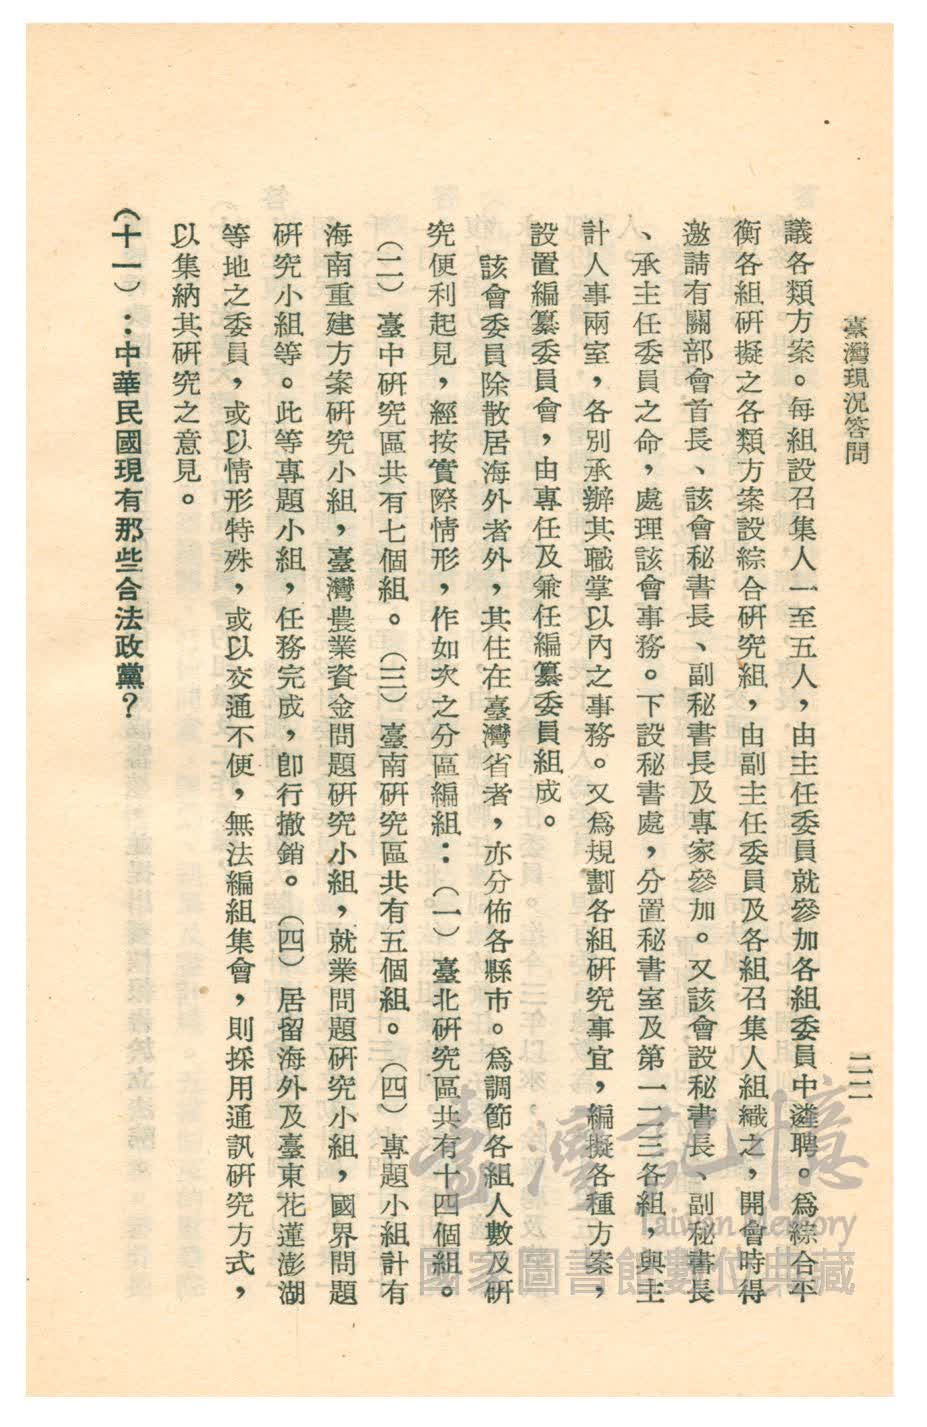 臺灣現況答問
二二
議各類方案。每組設召集人一至五人，由主任委員就參加各組委員中遴聘。爲綜合平
衡各組研擬之各類方案設綜合研究組，由副主任委員及各組召集人組織之，開會時得
邀請有關部會首長、該會秘書長、副秘書長及專家參加。又該會設秘書長、副秘書長
、承主任委員之命，處理該會事務。下設秘書處，分置秘書室及第一二三各組，與主
計人事兩室，各別承辦其職掌以內之事務。又爲規劃各組研究事宜，編擬各種方案，
設置編纂委員會，由專任及兼任編纂委員組成。
該會委員除散居海外者外，其住在臺灣省者，亦分佈各縣市。爲調節各組人數及研
究便利起見，經按實際情形，作如次之分區編組：（一）臺北研究區共有十四個組。
（二）臺中研究區共有七個組。（三）臺南研究區共有五個組。（四）專題小組計有
海南重建方案研究小組，臺灣農業資金問題研究小組，就業問題研究小組，國界問題
研究小組等。此等專題小組，任務完成，卽行撤銷。（四）居留海外及臺東花蓮澎湖
等地之委員，或以情形特殊，或以交通不便，無法編組集會，則採用通訊研究方式，
以集納其研究之意見。
（十一）：中華民國現有那些合法政黨？
臺灣記憶
Taiwan Memory
國家圖書館數位典藏